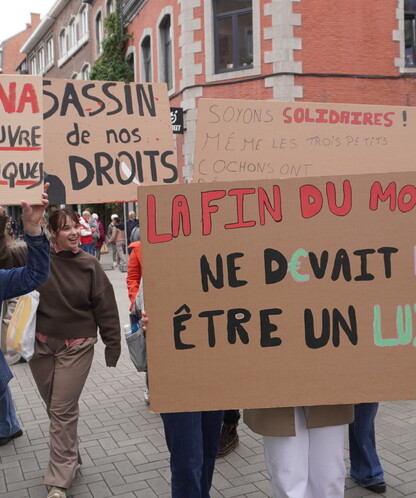 NA
UVRE
IQUE
SASSIN
de nos
DROITS
SOYONS SOLIDAIRES !
MÊME LES TROIS PETITS
COCHONS ONT
LA FIN DU MO
NE D€VAIT
ÊTRE UN LU